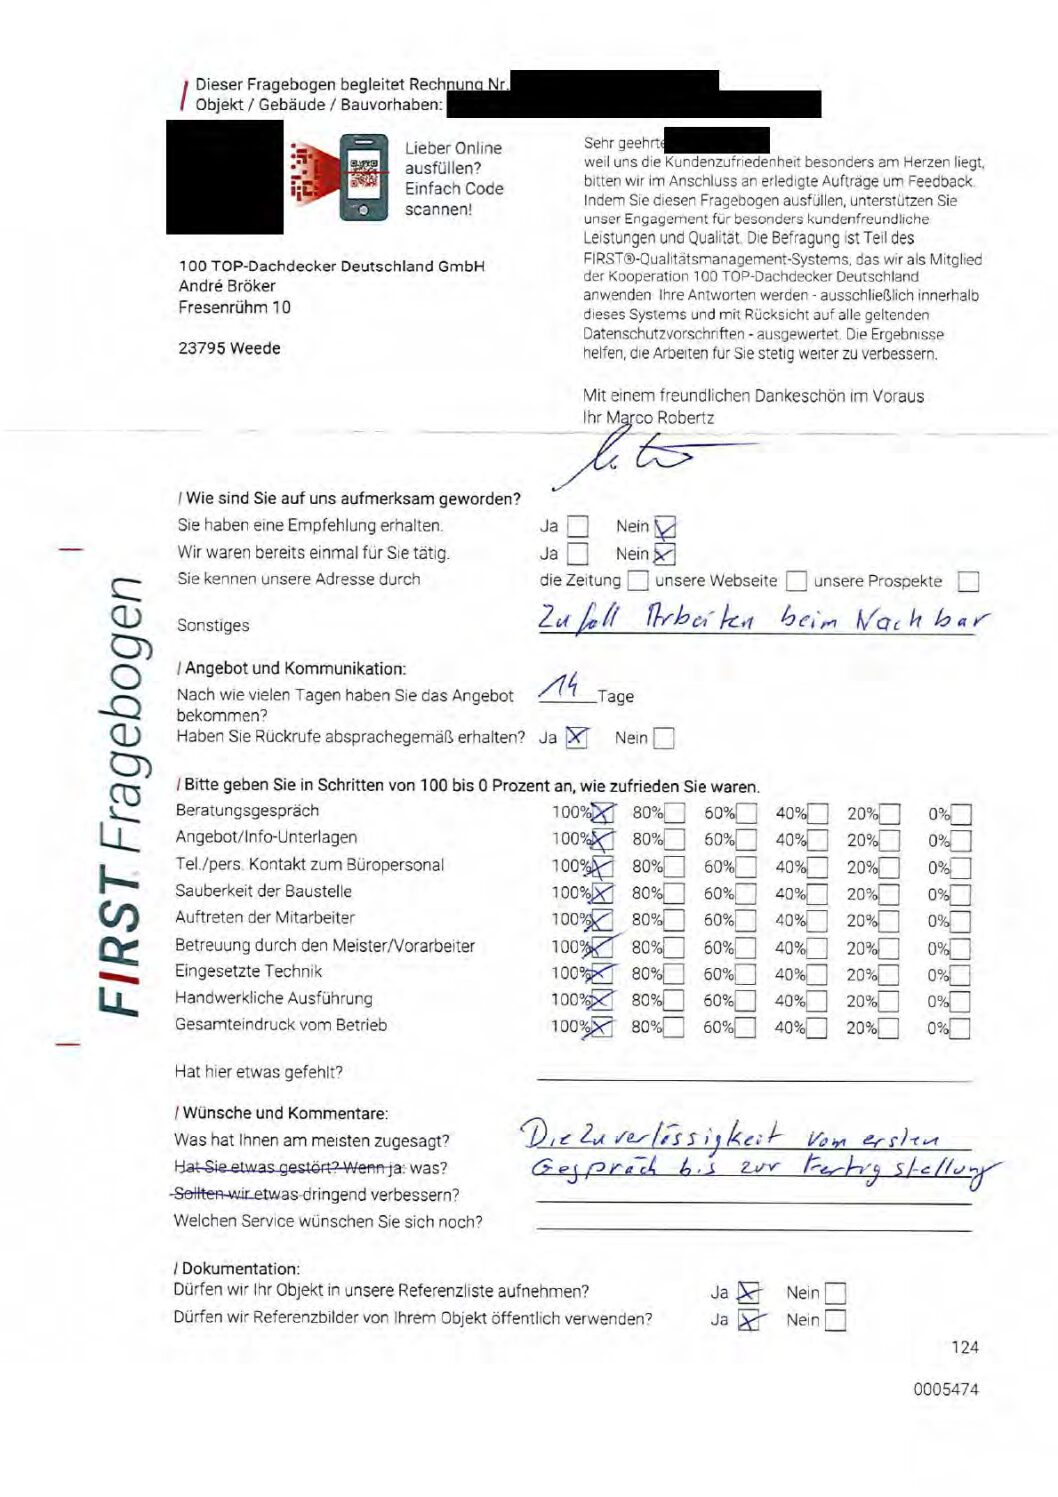 Dieser Fragebogen begleitet Rechnung Nr.
Objekt / Gebäude / Bauvorhaben:
Lieber Online
ausfüllen?
Einfach Code
scannen!
100 TOP-Dachdecker Deutschland GmbH
André Bröker
Fresenrühm 10
23795 Weede
Sehr geehrte
weil uns die Kundenzufriedenheit besonders am Herzen liegt,
bitten wir im Anschluss an erledigte Aufträge um Feedback.
Indem Sie diesen Fragebogen ausfüllen, unterstützen Sie
unser Engagement für besonders kundenfreundliche
Leistungen und Qualität. Die Befragung ist Teil des
FIRST®-Qualitätsmanagement-Systems, das wir als Mitglied
der Kooperation 100 TOP-Dachdecker Deutschland
anwenden. Ihre Antworten werden - ausschließlich innerhalb
dieses Systems und mit Rücksicht auf alle geltenden
Datenschutzvorschriften - ausgewertet. Die Ergebnisse
helfen, die Arbeiten für Sie stetig weiter zu verbessern.
Mit einem freundlichen Dankeschön im Voraus
Ihr Marco Robertz
FIRST Fragebogen
/ Wie sind Sie auf uns aufmerksam geworden?
Sie haben eine Empfehlung erhalten. Ja Nein
Wir waren bereits einmal für Sie tätig. Ja Nein
Sie kennen unsere Adresse durch die Zeitung unsere Webseite unsere Prospekte
Sonstiges Zufall Arbeiten beim Nachbar
/ Angebot und Kommunikation:
Nach wie vielen Tagen haben Sie das Angebot 14 Tage
bekommen?
Haben Sie Rückrufe absprachegemäß erhalten? Ja Nein
/ Bitte geben Sie in Schritten von 100 bis 0 Prozent an, wie zufrieden Sie waren.
Beratungsgespräch 100% 80% 60% 40% 20% 0%
Angebot/Info-Unterlagen 100% 80% 60% 40% 20% 0%
Tel./pers. Kontakt zum Büropersonal 100% 80% 60% 40% 20% 0%
Sauberkeit der Baustelle 100% 80% 60% 40% 20% 0%
Auftreten der Mitarbeiter 100% 80% 60% 40% 20% 0%
Betreuung durch den Meister/Vorarbeiter 100% 80% 60% 40% 20% 0%
Eingesetzte Technik 100% 80% 60% 40% 20% 0%
Handwerkliche Ausführung 100% 80% 60% 40% 20% 0%
Gesamteindruck vom Betrieb 100% 80% 60% 40% 20% 0%
Hat hier etwas gefehlt?
/ Wünsche und Kommentare:
Was hat Ihnen am meisten zugesagt? Die Zuverlässigkeit vom ersten
Hat Sie etwas gestört? Wenn ja: was? Gespräch bis zur Fertigstellung
Sollten wir etwas dringend verbessern?
Welchen Service wünschen Sie sich noch?
/ Dokumentation:
Dürfen wir Ihr Objekt in unsere Referenzliste aufnehmen? Ja Nein
Dürfen wir Referenzbilder von Ihrem Objekt öffentlich verwenden? Ja Nein
124
0005474